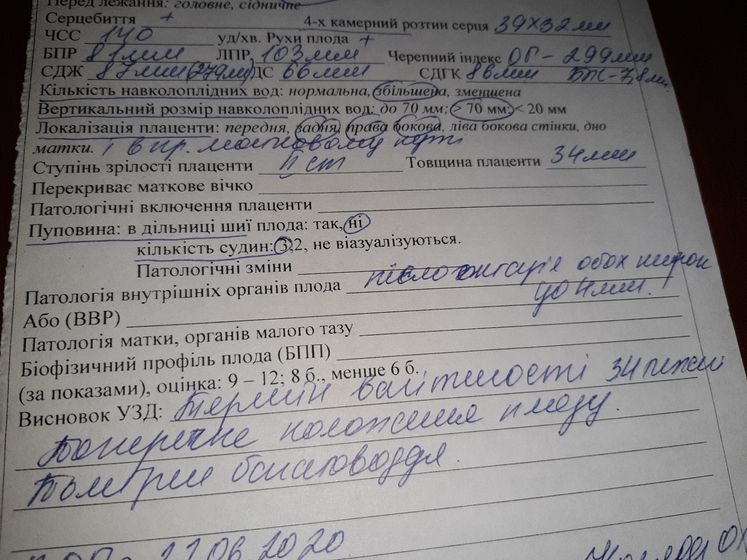 Перед лежання: головне, сідничне
Серцебиття + 4-х камерний розтин серця 39х32 мм
ЧСС 140 уд/хв. Рухи плода +
БПР 81мм ЛПР 103мм Черепний індекс ОГ - 299мм
СДЖ 87мм (279мм) ДС 66мм СДГК 86мм 7,8мм
Кількість навколоплідних вод: нормальна, збільшена, зменшена
Вертикальний розмір навколоплідних вод: до 70 мм; > 70 мм; < 20 мм
Локалізація плаценти: передня, задня, права бокова, ліва бокова стінки, дно
матки. і в пр. матковому куті
Ступінь зрілості плаценти ІІ ст Товщина плаценти 34мм
Перекриває маткове вічко
Патологічні включення плаценти
Пуповина: в дільниці шиї плода: так, ні
кількість судин: 3,2, не візуалізуються.
Патологічні зміни
Патологія внутрішніх органів плода пієлоектазія обох нирок
до 4мм.
Або (ВВР)
Патологія матки, органів малого тазу
Біофізичний профіль плода (БПП)
(за показами), оцінка: 9 – 12; 8 б., менше 6 б.
Висновок УЗД: Термін вагітності 34 тижні
Поперечне положення плоду.
Помірне багатоводдя.
06 2020